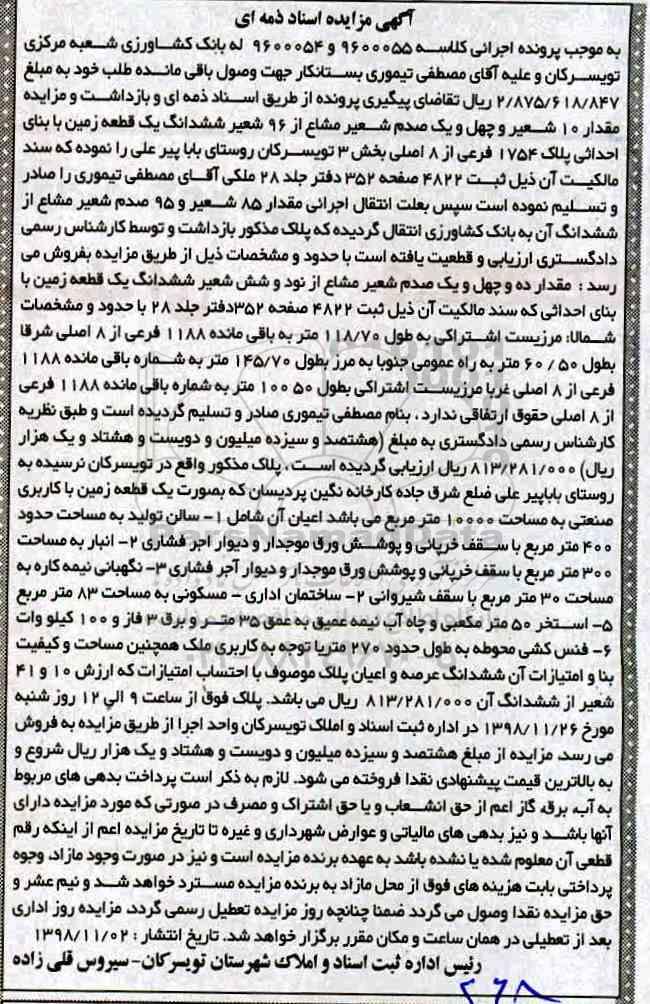 آگهی مزایده اسناد ذمه ای
به موجب پرونده اجرائی کلاسه ۹۶۰۰۰۵۵ و ۹۶۰۰۰۵۴ له بانک کشاورزی شعبه مرکزی
تویسرکان و علیه آقای مصطفی تیموری بستانکار جهت وصول باقی مانده طلب خود به مبلغ
۲/۸۷۵/۶۱۸/۸۴۷ ریال تقاضای پیگیری پرونده از طریق اسناد ذمه ای و بازداشت و مزایده
مقدار ۱۰ شعیر و چهل و یک صدم شعیر مشاع از ۹۶ شعیر ششدانگ یک قطعه زمین با بنای
احداثی پلاک ۱۷۵۴ فرعی از ۸ اصلی بخش ۳ تویسرکان روستای بابا پیر علی را نموده که سند
مالکیت آن ذیل ثبت ۴۸۲۲ صفحه ۳۵۲ دفتر جلد ۲۸ ملکی آقای مصطفی تیموری را صادر
و تسلیم نموده است سپس بعلت انتقال اجرائی مقدار ۸۵ شعیر و ۹۵ صدم شعیر مشاع از
ششدانگ آن به بانک کشاورزی انتقال گردیده که پلاک مذکور بازداشت و توسط کارشناس رسمی
دادگستری ارزیابی و قطعیت یافته است با حدود و مشخصات ذیل از طریق مزایده بفروش می
رسد : مقدار ده و چهل و یک صدم شعیر مشاع از نود و شش شعیر ششدانگ یک قطعه زمین با
بنای احداثی که سند مالکیت آن ذیل ثبت ۴۸۲۲ صفحه ۳۵۲دفتر جلد ۲۸ با حدود و مشخصات
شمالا: مرزیست اشتراکی به طول ۱۱۸/۷۰ متر به باقی مانده ۱۱۸۸ فرعی از ۸ اصلی شرقا
بطول ۶۰/۵۰ متر به راه عمومی جنوبا به مرز بطول ۱۴۵/۷۰ متر به شماره باقی مانده ۱۱۸۸
فرعی از ۸ اصلی غربا مرزیست اشتراکی بطول ۵۰ ۱۰۰ متر به شماره باقی مانده ۱۱۸۸ فرعی
از ۸ اصلی حقوق ارتفاقی ندارد ، بنام مصطفی تیموری صادر و تسلیم گردیده است و طبق نظریه
کارشناس رسمی دادگستری به مبلغ (هشتصد و سیزده میلیون و دویست و هشتاد و یک هزار
ریال) ۸۱۳/۲۸۱/۰۰۰ ریال ارزیابی گردیده است ، پلاک مذکور واقع در تویسرکان نرسیده به
روستای باباپیر علی ضلع شرق جاده کارخانه نگین پردیسان که بصورت یک قطعه زمین با کاربری
صنعتی به مساحت ۱۰۰۰۰ متر مربع می باشد اعیان آن شامل ۱- سالن تولید به مساحت حدود
۴۰۰ متر مربع با سقف خرپائی و پوشش ورق موجدار و دیوار اجر فشاری ۲- انبار به مساحت
۳۰۰ متر مربع با سقف خرپائی و پوشش ورق موجدار و دیوار آجر فشاری ۳- نگهبانی نیمه کاره به
مساحت ۳۰ متر مربع با سقف شیروانی ۲- ساختمان اداری - مسکونی به مساحت ۸۳ متر مربع
۵- استخر ۵۰ متر مکعبی و چاه آب نیمه عمیق به عمق ۳۵ متر و برق ۳ فاز و ۱۰۰ کیلو وات
۶- فنس کشی محوطه به طول حدود ۲۷۰ متربا توجه به کاربری ملک همچنین مساحت و کیفیت
بنا و امتیازات آن ششدانگ عرصه و اعیان پلاک موصوف با احتساب امتیازات که ارزش ۱۰ و ۴۱
شعیر از ششدانگ آن ۸۱۳/۲۸۱/۰۰۰ ریال می باشد. پلاک فوق از ساعت ۹ الی ۱۲ روز شنبه
مورخ ۱۳۹۸/۱۱/۲۶ در اداره ثبت اسناد و املاک تویسرکان واحد اجرا از طریق مزایده به فروش
می رسد. مزایده از مبلغ هشتصد و سیزده میلیون و دویست و هشتاد و یک هزار ریال شروع و
به بالاترین قیمت پیشنهادی نقدا فروخته می شود. لازم به ذکر است پرداخت بدهی های مربوط
به آب، برق، گاز اعم از حق انشعاب و یا حق اشتراک و مصرف در صورتی که مورد مزایده دارای
آنها باشد و نیز بدهی های مالیاتی و عوارض شهرداری و غیره تا تاریخ مزایده اعم از اینکه رقم
قطعی آن معلوم شده یا نشده باشد به عهده برنده مزایده است و نیز در صورت وجود مازاد، وجوه
پرداختی بابت هزینه های فوق از محل مازاد به برنده مزایده مسترد خواهد شد و نیم عشر و
حق مزایده نقدا وصول می گردد ضمنا چنانچه روز مزایده تعطیل رسمی گردد، مزایده روز اداری
بعد از تعطیلی در همان ساعت و مکان مقرر برگزار خواهد شد. تاریخ انتشار : ۱۳۹۸/۱۱/۰۲
رئیس اداره ثبت اسناد و املاک شهرستان تویسرکان- سیروس قلی زاده
۲۶۸